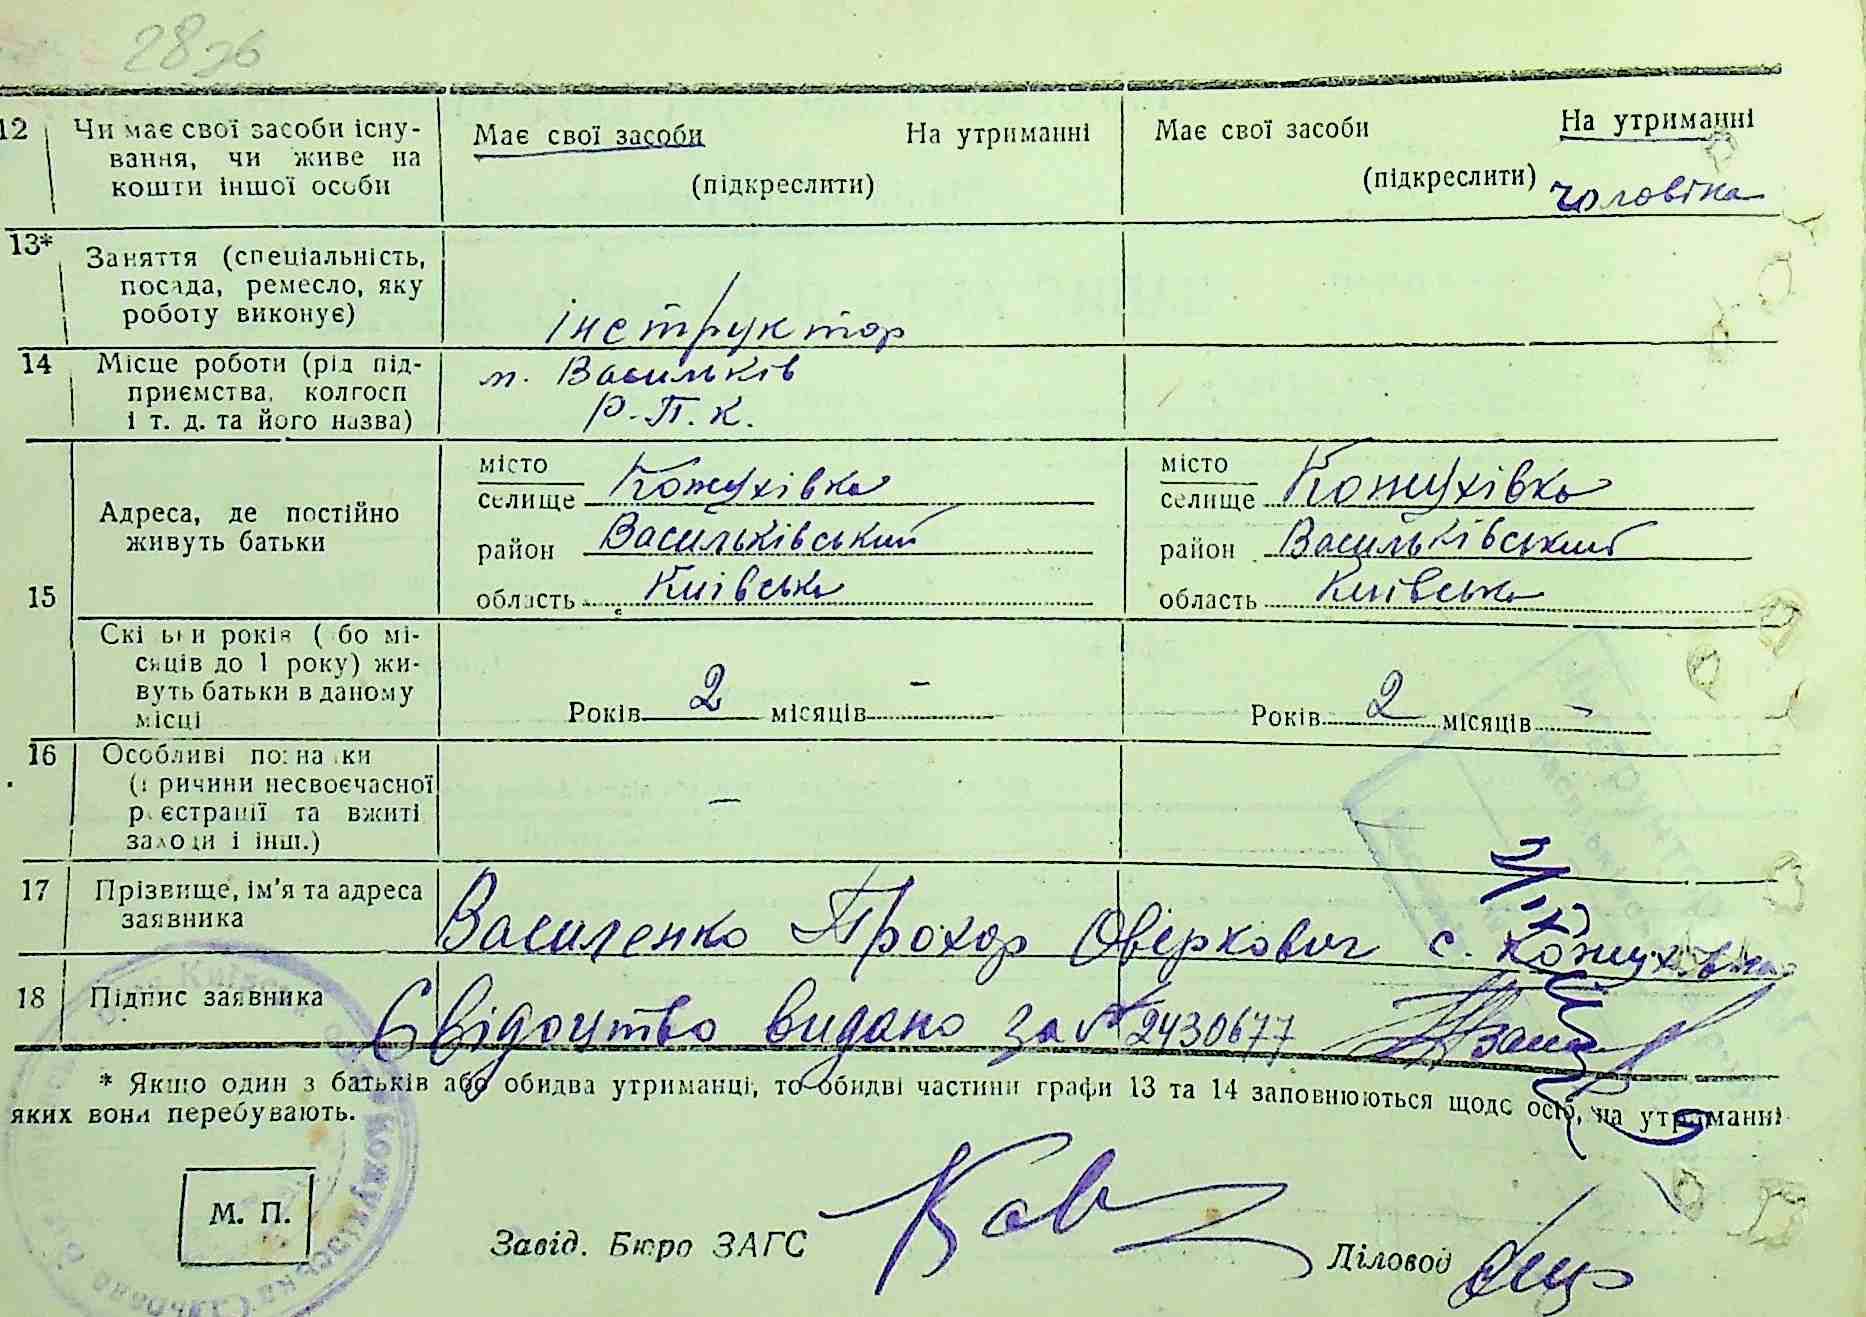 28
12 Чи має свої засоби існу-
вання, чи живе на
кошти іншої особи
Має свої засоби На утриманні
(підкреслити)
Має свої засоби На утриманні
(підкреслити) чоловіка
13* Заняття (спеціальність,
посада, ремесло, яку
роботу виконує)
інструктор
14 Місце роботи (рід під-
приємства, колгосп
і т. д. та його назва)
м. Васильків
Р.П.К.
15
Адреса, де постійно
живуть батьки
місто
селище Кожухівка
район Васильківський
область Київська
місто
селище Кожухівка
район Васильківський
область Київська
Скільки років (або мі-
сяців до 1 року) жи-
вуть батьки в даному
місці
Років 2 місяців -
Років 2 місяців -
16 Особливі познаки
(причини несвоєчасної
реєстрації та вжиті
заходи і інш.)
—
17 Прізвище, ім'я та адреса
заявника
Василенко Прохор Оверкович с. Кожухівка
18 Підпис заявника
Свідоцтво видано за № 2430677
* Якщо один з батьків або обидва утриманці, то обидві частини графи 13 та 14 заповнюються щодо осіб, на утриманні
яких вони перебувають.
М. П.
Завід. Бюро ЗАГС
Діловод